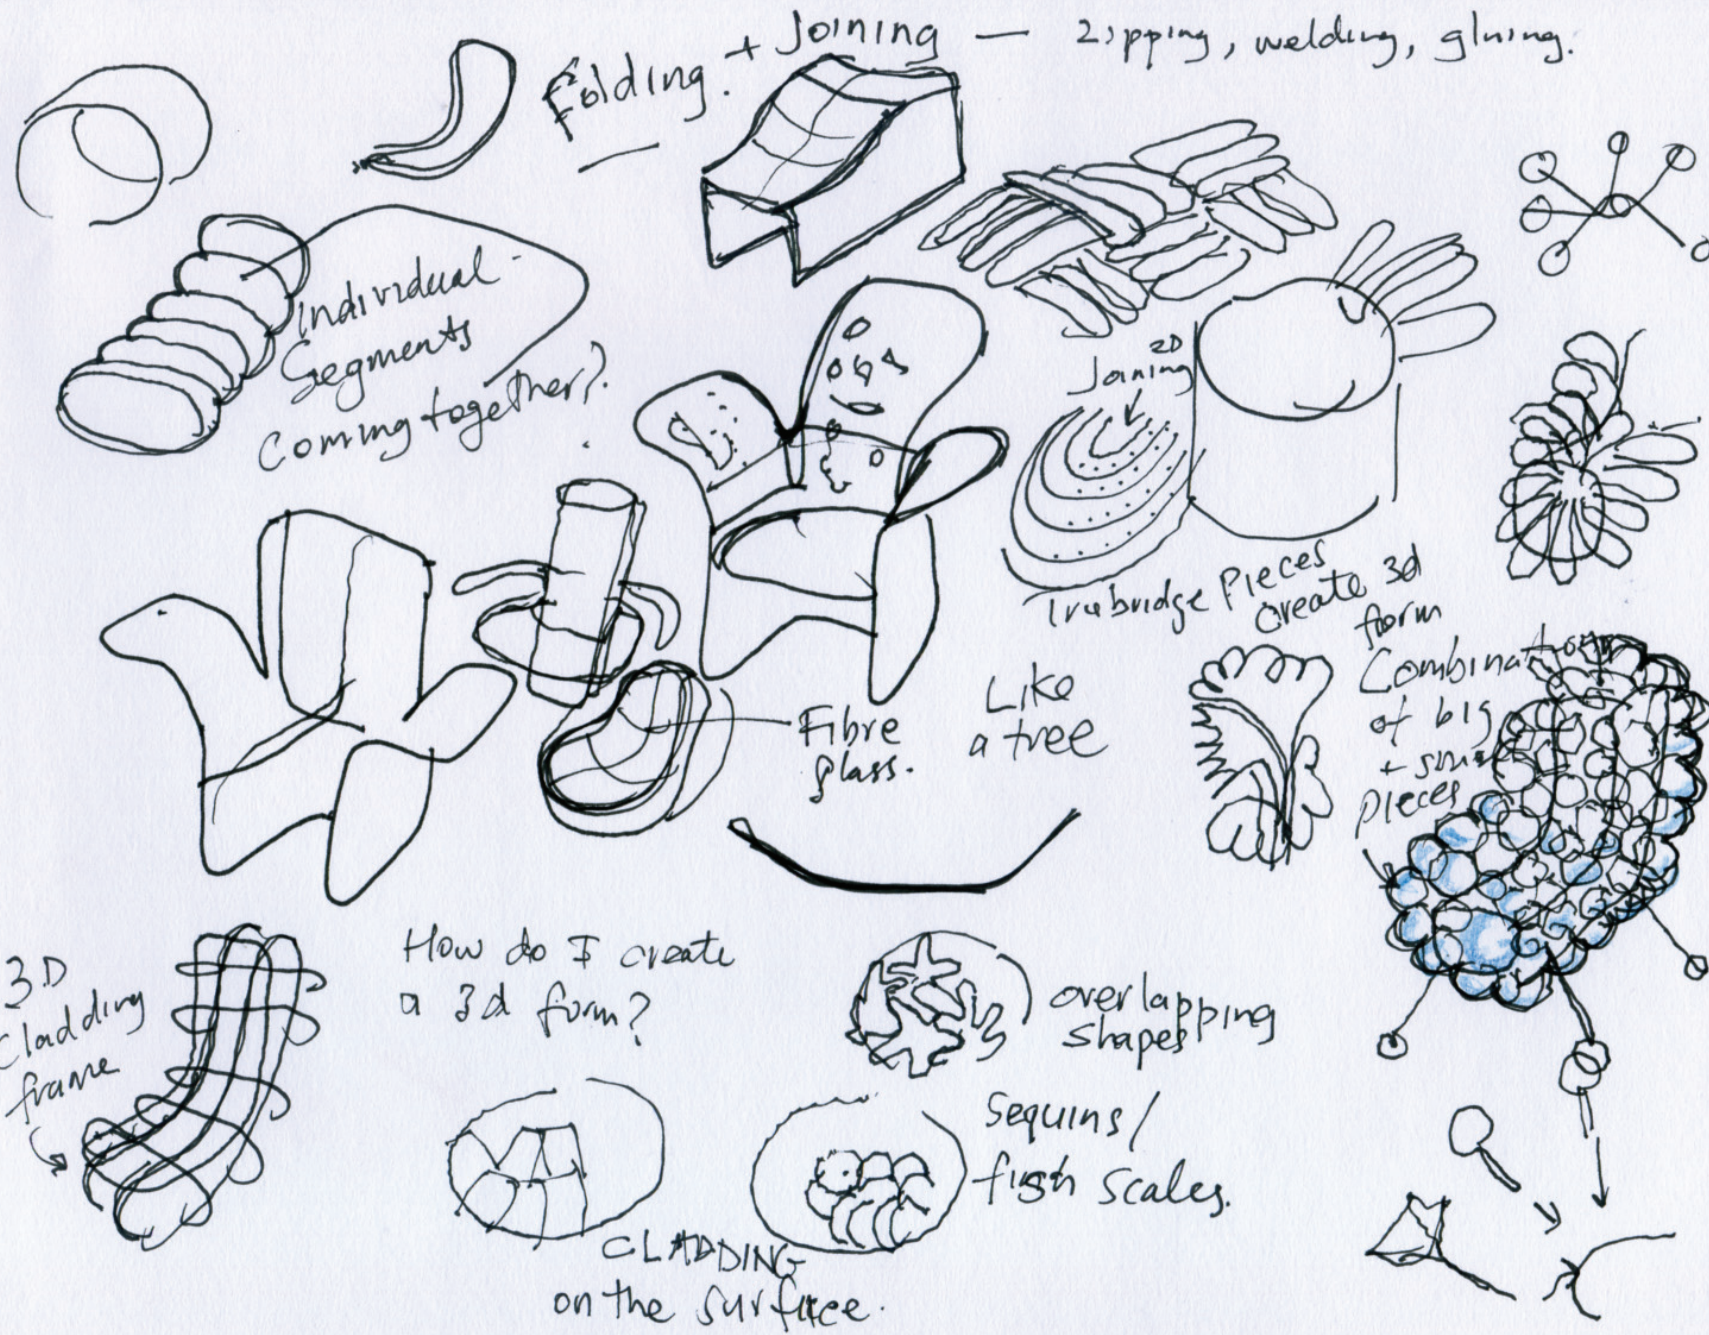 Folding. + Joining — Zipping, welding, gluing.
Individual
Segments
Coming together?
2D
Joining
Ironbridge Pieces
create 3d
form
Combination
of big
+ small
pieces
Like
a tree
Fibre
glass.
3D
Cladding
frame
How do I create
a 3d form?
overlapping
shapes
Sequins/
fish scales.
CLADDING
on the surface.